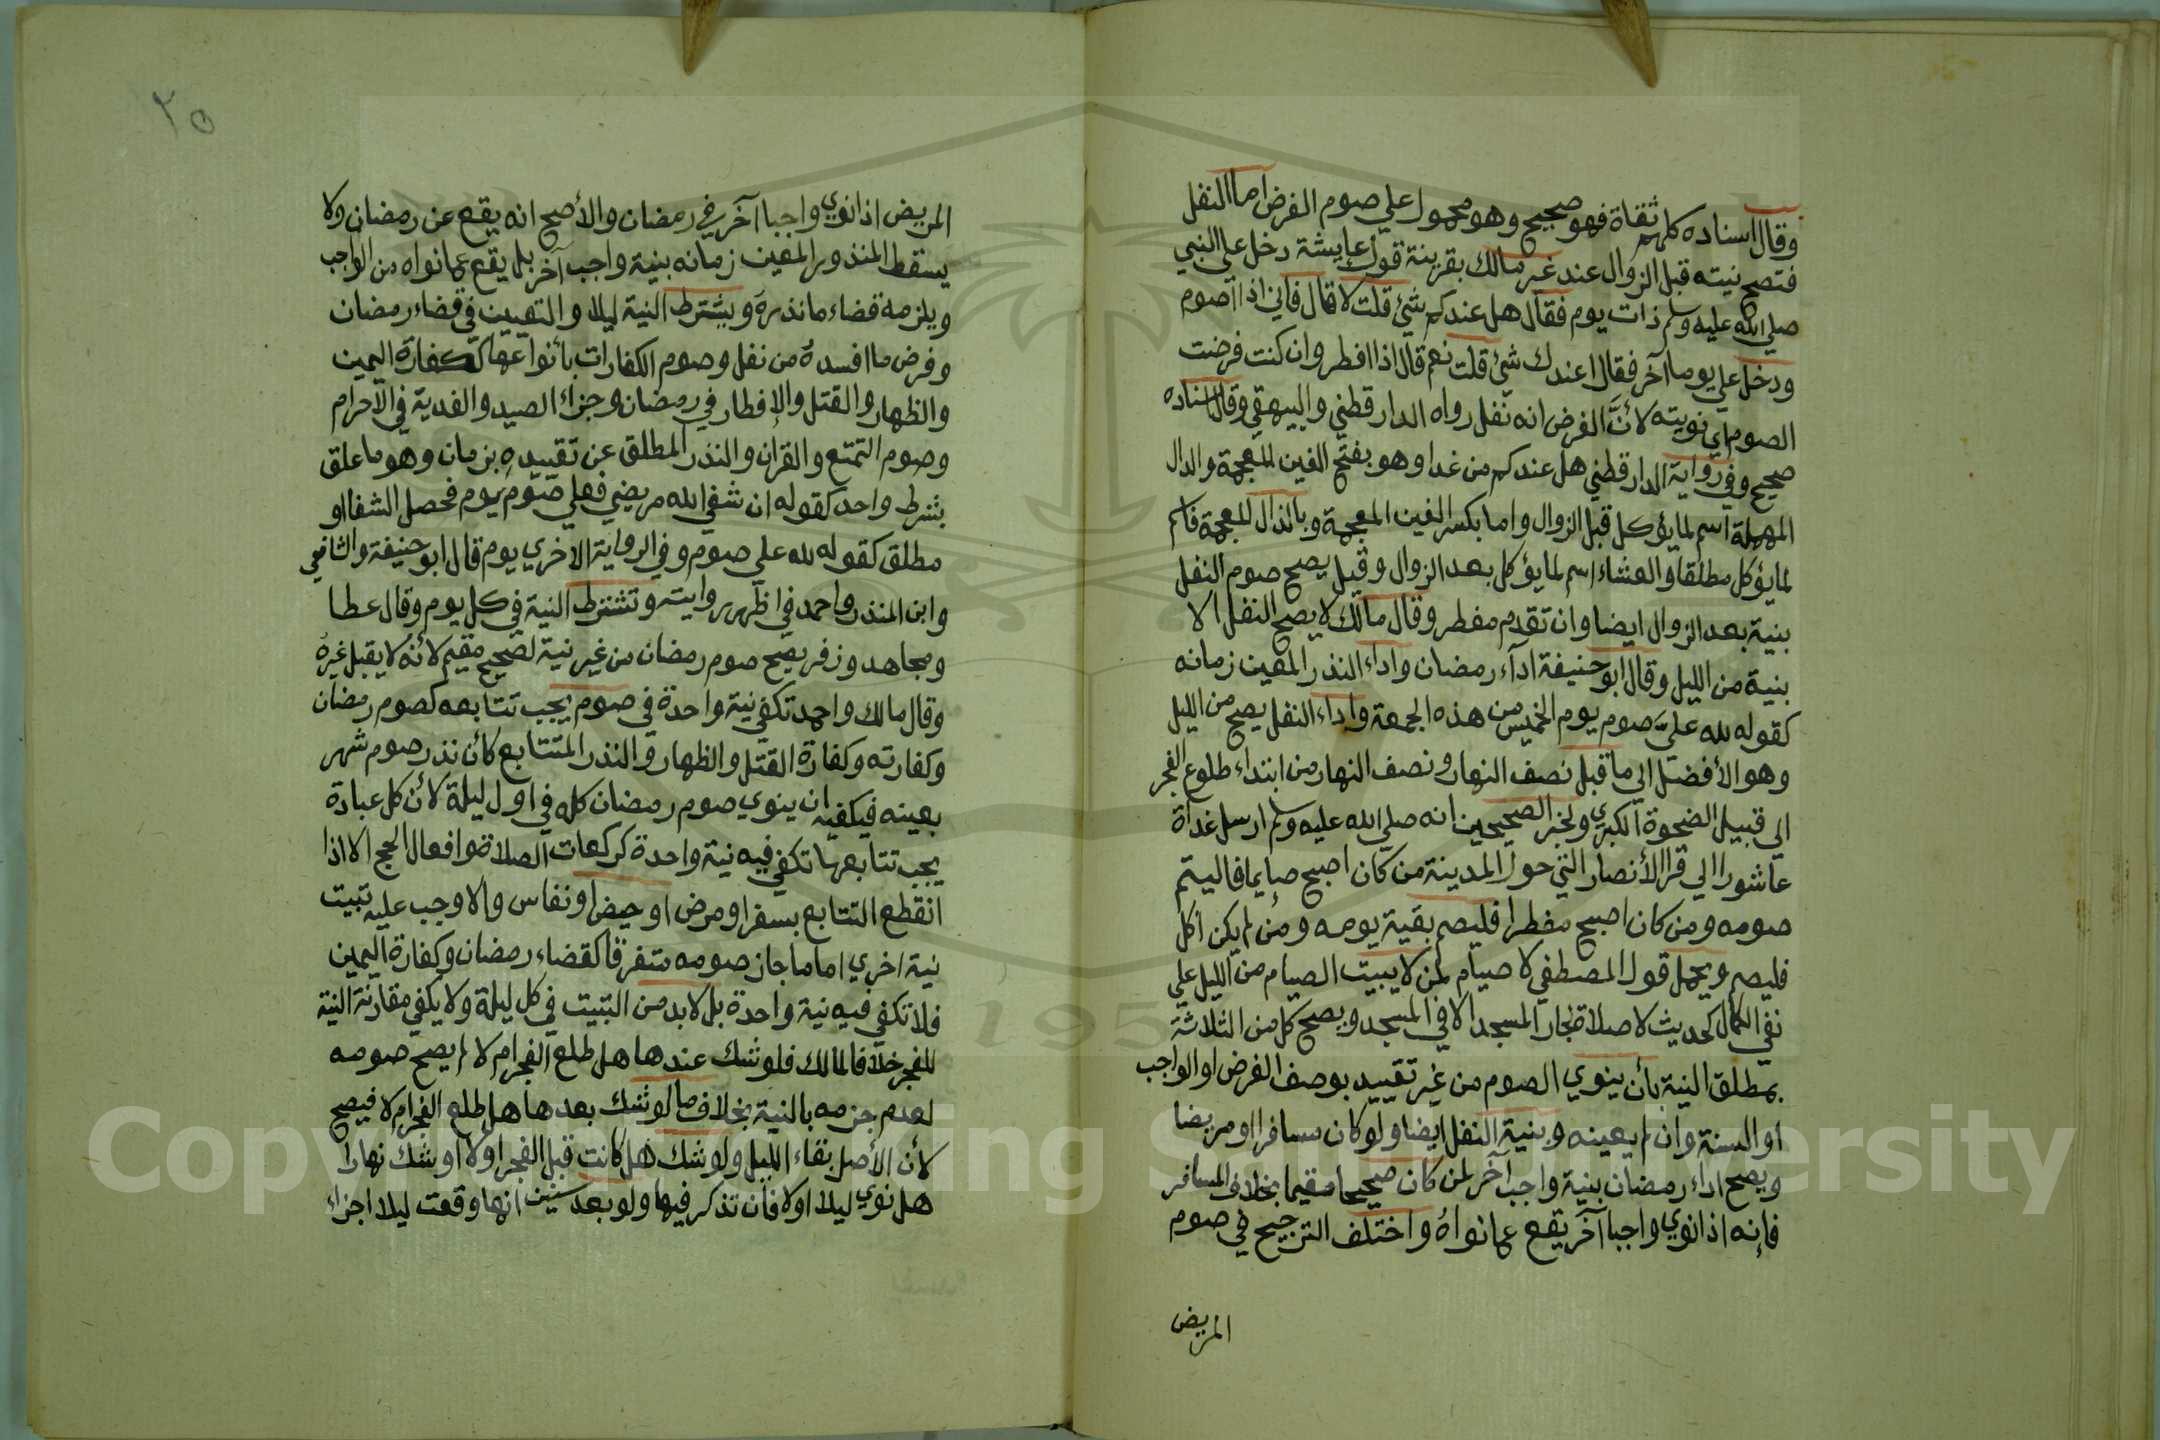 وقال اسناده كلهم ثقاة فهو صحيح وهو محمول علي صوم الفرض اما النفل
فتصح نيته قبل الزوال عند غير مالك بقرينة قول عايشة دخل علي النبي
صلي الله عليه وسلم ذات يوم فقال هل عندكم شئ قلت لا قال فاني اذا اصوم
ودخل علي يوما آخر فقال اعندك شئ قلت نعم قال اذا افطر وان كنت فرضت
الصوم اي نويته لأنَّ الفرض انه نفل رواه الدارقطني والبيهقي وقال اسناده
صحيح وفي رواية الدارقطني هل عندكم من غدا وهو بفتح الغين المعجمة والدال
المهملة اسم لما يؤكل قبل الزوال واما بكسر الغين المعجمة وبالذال المعجمة فاسم
لما يؤكل مطلقا والعشاء اسم لما يؤكل بعد الزوال وقيل يصح صوم النفل
بنية بعد الزوال ايضا وان تقدم مفطر وقال مالك لا يصح النفل الا
بنية من الليل وقال ابو حنيفة ادآء رمضان واداء النذر المعين زمانه
كقوله لله عليَّ صوم يوم الخميس من هذه الجمعة واداء النفل يصح من الليل
وهو الأفضل الي ما قبل نصف النهار ونصف النهار من ابتداء طلوع الفجر
الى قبيل الضحوة الكبري ولخبر الصحيحين انه صلي الله عليه وسلم ارسل غداة
عاشورا الي قرا الأنصار التي حول المدينة من كان اصبح صايما فاليتم
صومه ومن كان اصبح مفطرا فليصم بقية يومه ومن لم يكن اكل
فليصم ويحمل قول المصطفي لا صيام لمن لا يبيت الصيام من الليل علي
نفي الكمال كحديث لا صلاة لجار المسجد الا في المسجد ويصح كل من الثلاثة
بمطلق النية بأن ينوي الصوم من غير تقييد بوصف الفرض او الواجب
او السنة وان لم يعينه وبنية النفل ايضا ولو كان مسافرا او مريضا
ويصح اداء رمضان بنية واجب آخر لمن كان صحيحا مقيما بخلاف المسافر
فإنه اذا نوي واجبا آخر يقع عما نواهُ واختلف الترجيح في صوم
المريض
٢٥
المريض اذا نوي واجبا آخر في رمضان والأصح انه يقع عن رمضان ولا
يسقط المنذور المعين زمانه بنية واجب آخر بل يقع عما نواه من الواجب
ويلزمه قضاء ما نذره ويشترط النية ليلا والتعيين في قضاء رمضان
وفرض ما افسده من نفل وصوم الكفارات بأنواعها ككفارة اليمين
والظهار والقتل والإفطار في رمضان وجزاء الصيد والفدية في الاحرام
وصوم التمتع والقران والنذر المطلق عن تقييده بزمان وهو ما علق
بشرط واحد كقوله ان شفي الله مريضي فعلي صوم يوم فحصل الشفا او
مطلق كقوله لله علي صوم وفي الرواية الاخري يوم قال ابو حنيفة والشافعي
وابن المنذر واحمد في اظهر روايته وتشترط النية في كل يوم وقال عطا
ومجاهد وزفر يصح صوم رمضان من غير نية لصحيح مقيم لأنه لا يقبل غيرهُ
وقال مالك واحمد تكفي نية واحدة في صوم يجب تتابعه كصوم رمضان
وكفارته وكفارة القتل والظهار والنذر المتتابع كأن نذر صوم شهر
بعينه فيكفيه ان ينوي صوم رمضان كله في اول ليلة لأن كل عبادة
يجب تتابعها تكفي فيه نية واحدة كركعات الصلاة وافعال الحج الا اذا
انقطع التتابع بسفر او مرض او حيض او نفاس والا وجب عليه تبيت
نية اخري اما ما جاز صومه متفرقا كقضاء رمضان وكفارة اليمين
فلا تكفي فيه نية واحدة بل لابد من التبيت في كل ليلة ولا يكفي مقارنة النية
للفجر خلافا لمالك فلو شك عندها هل طلع الفجر ام لا لم يصح صومه
لعدم جزمه بالنية بخلاف ما لو شك بعدها هل طلع الفجر ام لا فيصح
لأن الأصل بقاء الليل ولو شك هل كانت قبل الفجر اولا او شك نهارا
هل نوي ليلا اولا فأن تذكر فيها ولو بعد سنين انها وقعت ليلا اجزاء
Copyright © King Saud University
195